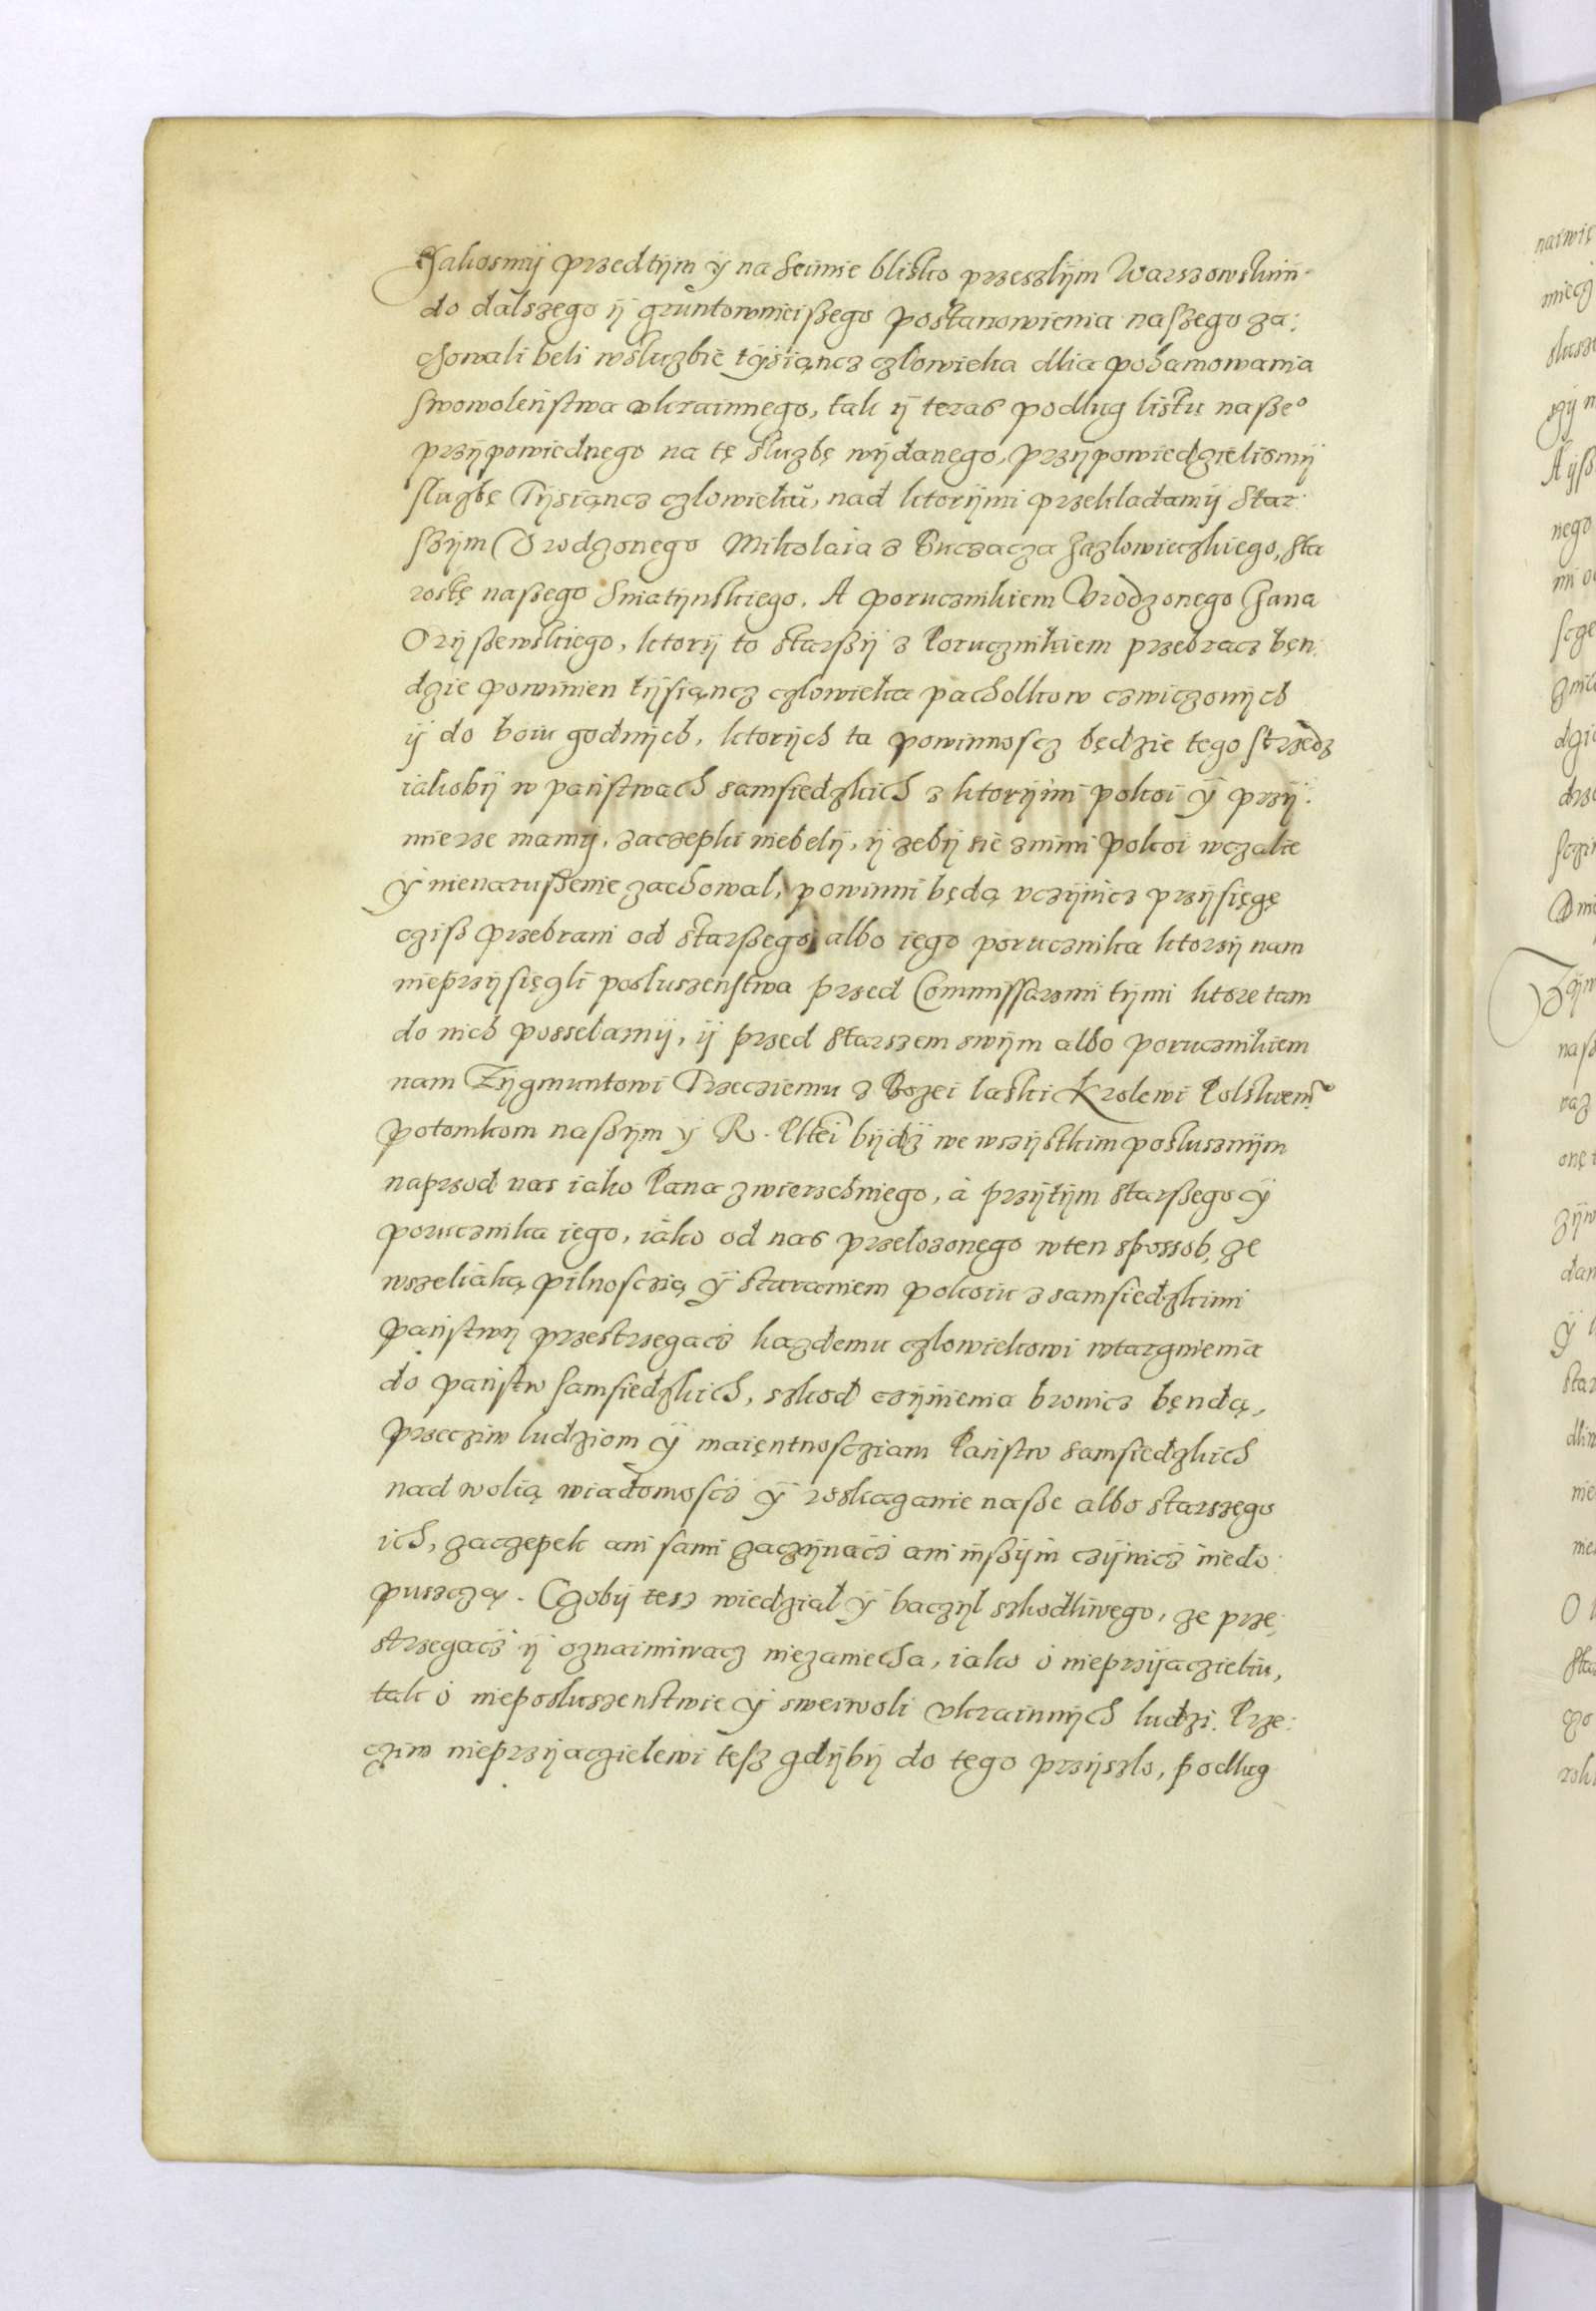 Jakosmÿ przedtÿm ÿ na Seimie blisko przeszlÿm Warszowskim
do dalszego ÿ gruntownieißego postanowienia naszego za:
chowali beli wsluzbie tÿsiącz czlowieka dlia pohamowania
swowoleństwa vkrainnego, tak ÿ teras podlug listu naßeº
przÿpowiednego na tę sluzbę wÿdanego, przÿpowiedzielismÿ
sluzbę Tÿsiąncz czlowieku, nad ktorÿmi przekladamÿ Star:
szÿm Vrodzonego Mikolaia z Buczacza Jazlowieczkiego, Sta
rostę naßego Sniatÿnskiego. A porucznikiem Vrodzonego Jana
Orÿßewskiego, ktorÿ to starßÿ z Porucznikiem przebracz bęn:
dzie powinien tÿsiąncz czlowieka pacholkow czwiczonÿch
ÿ do boiu godnÿch, ktorÿch ta powinnoscz będzie tego strzedz
iakobÿ w państwach samsiedzkich z ktorÿmi pokoi ÿ przÿ:
mierze mamÿ, zaczepki niebelÿ, ÿ zebÿ sie znimi pokoi wczalie
ÿ nienarußenie zachowal, powinni będą vczÿnicz przÿsięgę
cziß przebrani od starßego, albo iego porucznika ktorzÿ nam
nieprzÿsięgli posluszeństwa przed Commissarzmi tÿmi ktore tam
do nich posselamÿ, ÿ przed starszem swÿm albo porucznikiem
nam Zÿgmuntowi Trzecziemu z Bozei laski Krolewi Polskiemº
potomkom naßÿm ÿ R. Pltei bÿdź we wszÿstkim poslusznÿm
naprzod nas iako Pana zwierzchniego, à przÿtÿm starßego ÿ
porucznika iego, iako od nas przelozonego wten spossob, ze
wszeliaką pilnosczią ÿ staraniem pokoiu z samsiedzkimi
państwÿ przestrzegacz kazdemu czlowiekowi wtargnienia
do państw samsiedzkich, szkod czÿnienia bronicz będą,
przecziw ludziom ÿ maiętnoscziam Państw samsiedzkich
nad wolią wiadomoscz ÿ roskazanie naße albo starszego
ich, zaczepek ani sami zaczÿnacz ani inßÿm czÿnicz niedo:
puszczą. Czobÿ tesz wiedzial ÿ baczÿl szkodliwego, ze prze:
strzegacz ÿ oznaimiwacz niezaniecha, iako o nieprzÿaczieliu,
tak o nieposluszenstwie ÿ sweiwoli vkrainnÿch ludzi. Prze:
cziw nieprzÿaczielewi tesz gdÿbÿ do tego przÿszlo, podlug